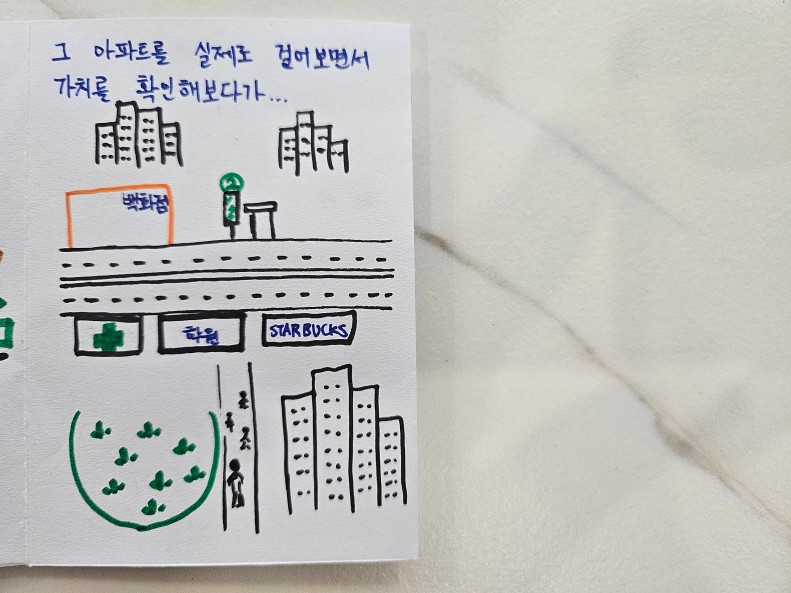 그 아파트를 실제로 걸어보면서
가치를 확인해보다가...
백화점
2
학원
STARBUCKS